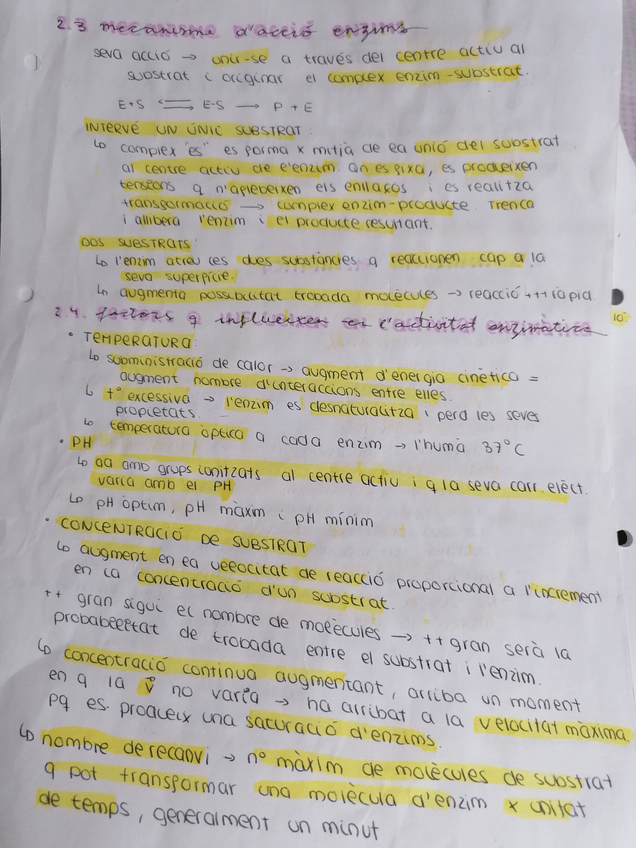 2.3 mecanisme d'acció enzims
seva acció → unir-se a través del centre actiu al
substrat i originar el complex enzim-substrat.
E+S ⇌ E-S → P+E
INTERVÉ UN ÚNIC SUBSTRAT:
↳ complex "es" es forma x mitjà de la unió del substrat
al centre actiu de l'enzim. On es fixa, es produeixen
tensions q n'afebleixen els enllaços i es realitza
transformació → complex enzim-producte. Trenca
i allibera l'enzim i el producte resultant.
DOS SUBSTRATS:
↳ l'enzim atreu les dues substàncies q reaccionen cap a la
seva superfície.
↳ augmenta possibilitat trobada molècules → reacció +++ràpid.
2.4. factors q influeixen en l'activitat enzimàtica
• TEMPERATURA:
↳ subministració de calor → augment d'energia cinètica =
augment nombre d'interaccions entre elles.
↳ tº excessiva → l'enzim es desnaturalitza i perd les seves
propietats.
↳ temperatura òptica a cada enzim → l'humà 37°C
• PH
↳ aa amb grups ionitzats al centre actiu i q la seva carr. elèct.
varia amb el PH
↳ pH òptim, pH màxim i pH mínim
• CONCENTRACIÓ DE SUBSTRAT
↳ augment en la velocitat de reacció proporcional a l'increment
en la concentració d'un substrat.
++ gran sigui el nombre de molècules → ++gran serà la
probabilitat de trobada entre el substrat i l'enzim.
↳ concentració contínua augmentant, arriba un moment
en q la v no varia → ha arribat a la velocitat màxima
pq es produeix una saturació d'enzims.
↳ nombre de recanvi → nº màxim de molècules de substrat
q pot transformar una molècula d'enzim x unitat
de temps, generalment un minut
10